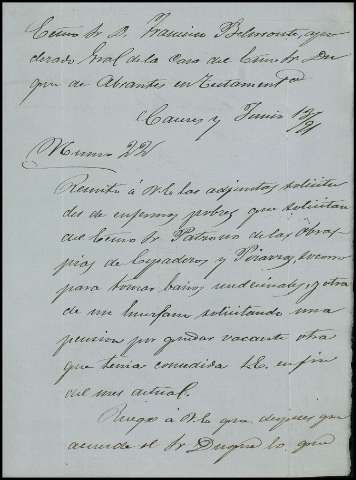 Excmo Sr. D. Francisco Belmonte, apo
derado Gral de la Casa del Excmo Sr. Du
que de Abrantes en Testamentª
Caceres y Junio 13/81
Numo 22
Remito á V.E. las adjuntas solicitu
des de enfermos pobres que solicitan
del Excmo Sr. Patrono de las Obras
pias de Espaderos y Pizarro, socorro
para tomar baños medicinales, y otra
de un huerfano solicitando una
pension por quedar vacante otra
que tenia concedida S.E. en fin
del mes actual.
Ruego á V.E. que despues que
acuerde el Sr. Duque lo que